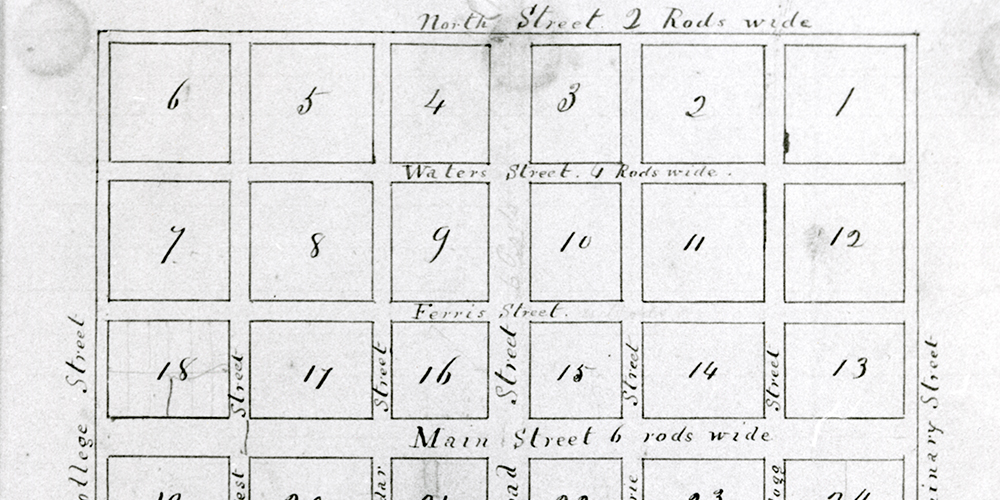 North Street 2 Rods wide
6 5 4 3 2 1
Waters Street. 4 Rods wide.
7 8 9 10 11 12
Ferris Street.
18 17 16 15 14 13
Street
Street
Street
Street
Street
College Street
Street
Main Street 6 rods wide